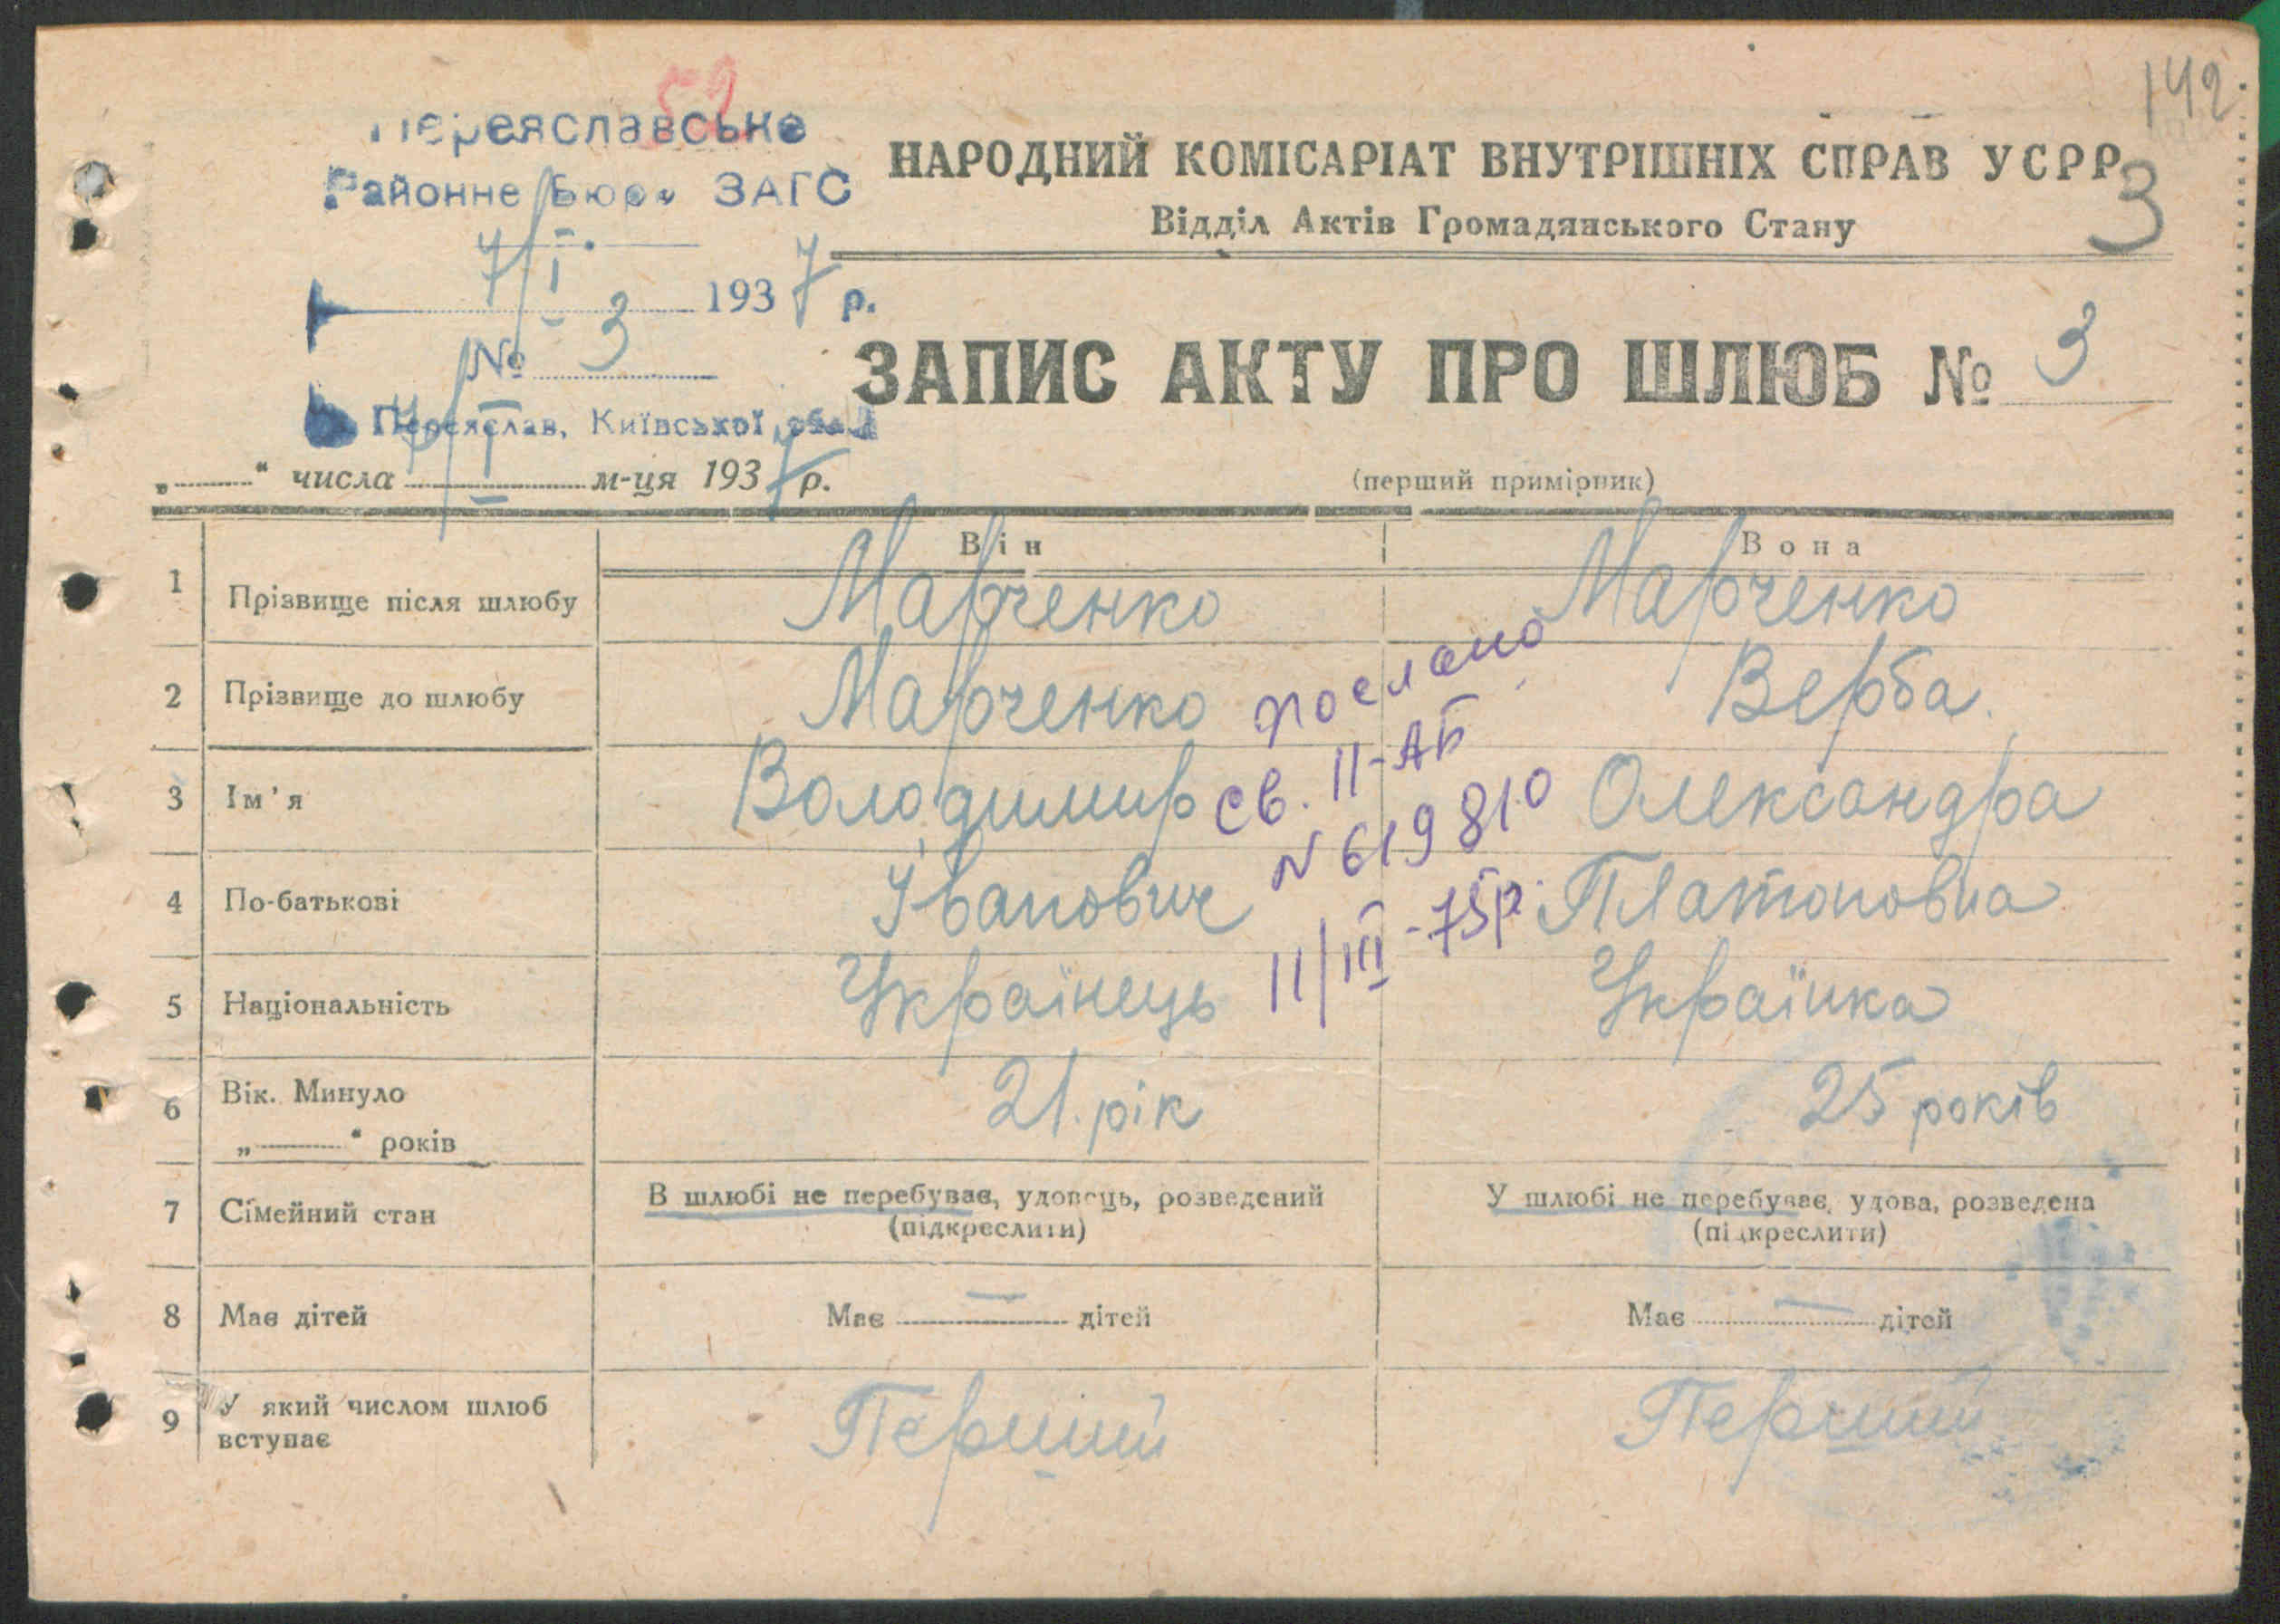 52
142
Переяславське
Районне Бюро ЗАГС
7/I 1937 р.
№ 3
Переяслав, Київської обл.
НАРОДНИЙ КОМІСАРІАТ ВНУТРІШНІХ СПРАВ УСРР
3
Відділ Актів Громадянського Стану
ЗАПИС АКТУ ПРО ШЛЮБ № 3
„ “ числа 7/I м-ця 1937 р.
(перший примірник)
Він Вона
1 Прізвище після шлюбу Марченко Марченко
2 Прізвище до шлюбу Марченко Верба
послано
св. II-АБ
3 Ім'я Володимир Олександра
N 619810
4 По-батькові Іванович Платоновна
11/III-75р.
5 Національність Українець Українка
6 Вік. Минуло
„ “ років 21. рік 25 років
7 Сімейний стан В шлюбі не перебував, удовець, розведений У шлюбі не перебуває, удова, розведена
(підкреслити) (підкреслити)
8 Має дітей Має — дітей Має — дітей
9 У який числом шлюб
вступає Перший Перший